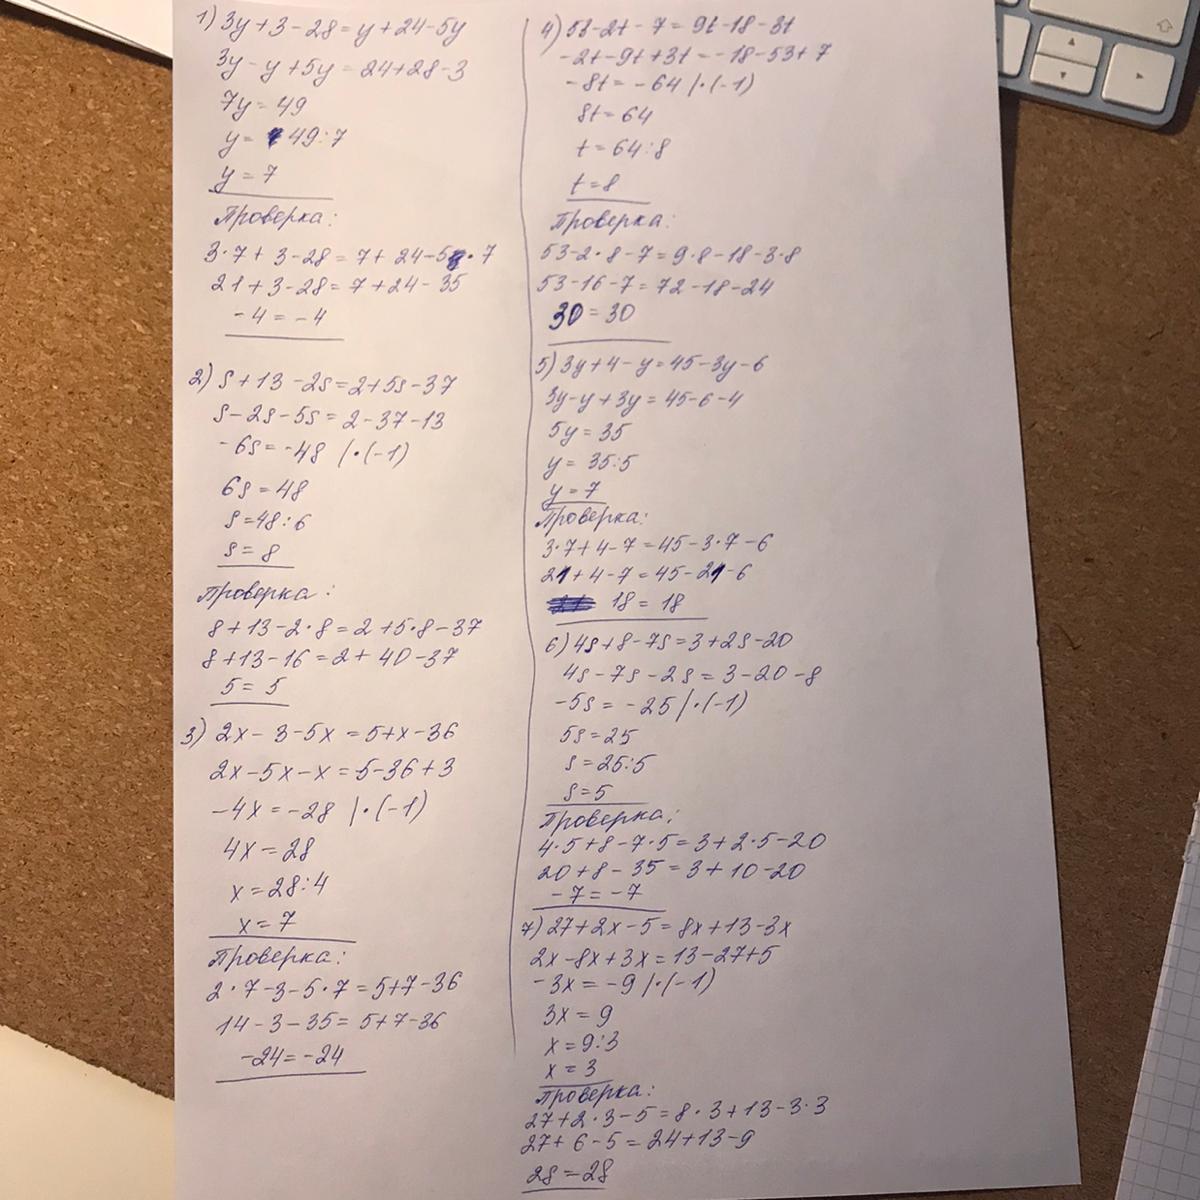 1) 3y+3-28=y+24-5y
3y-y+5y=24+28-3
7y=49
y= 49:7
y=7
Проверка:
3·7+3-28=7+24-5·7
21+3-28=7+24-35
-4=-4
2) s+13-2s=2+5s-37
s-2s-5s=2-37-13
-6s=-48 |·(-1)
6s=48
s=48:6
s=8
Проверка:
8+13-2·8=2+5·8-37
8+13-16=2+40-37
5=5
3) 2x-3-5x=5+x-36
2x-5x-x=5-36+3
-4x=-28 |·(-1)
4x=28
x=28:4
x=7
Проверка:
2·7-3-5·7=5+7-36
14-3-35=5+7-36
-24=-24
4) 53-2t-7=9t-18-3t
-2t-9t+3t=-18-53+7
-8t=-64 |·(-1)
8t=64
t=64:8
t=8
Проверка:
53-2·8-7=9·8-18-3·8
53-16-7=72-18-24
30=30
5) 3y+4-y=45-3y-6
3y-y+3y=45-6-4
5y=35
y=35:5
y=7
Проверка:
3·7+4-7=45-3·7-6
21+4-7=45-21-6
18=18
6) 4s+8-7s=3+2s-20
4s-7s-2s=3-20-8
-5s=-25 |·(-1)
5s=25
s=25:5
s=5
Проверка:
4·5+8-7·5=3+2·5-20
20+8-35=3+10-20
-7=-7
7) 27+2x-5=8x+13-3x
2x-8x+3x=13-27+5
-3x=-9 |·(-1)
3x=9
x=9:3
x=3
Проверка:
27+2·3-5=8·3+13-3·3
27+6-5=24+13-9
28=28